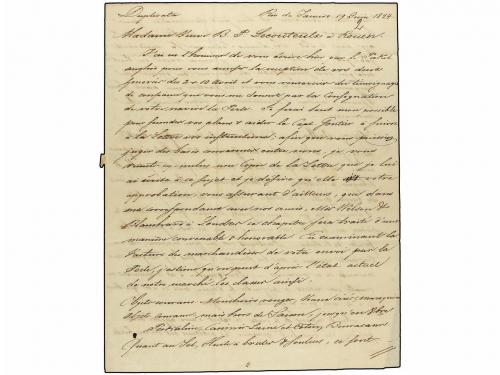 Duplicata Rio de Janeiro 19 Juin 1824
Madame Veuve B. P. Lecouteulx à Rouen
J'ai eu l'honneur de vous écrire hier par le Paket
anglais pour vous accuser la réception de vos deux
faveurs du 2 & 10 Avril et vous remercier du témoignage
de confiance que vous me donnez par la Consignation
de votre navire la Perle. Je ferai tout mon possible
pour seconder vos plans & aider le Cape Gautier à suivre
à la Lettre vos instructions; afin que vous puissiez
juger des bases convenues entre nous, je vous
remets ci inclus une Copie de la Lettre que je lui
ai écrite à ce sujet et je désire qu'elle ait votre
approbation, vous assurant d'ailleurs, que dans
ma correspondance avec nos amis, Mrs Wilson &
Blanshard à Londres ce chapitre sera traité d'une
manière convenable & honorable. En examinant la
facture des marchandises de votre envoi par la
Perle, j'estime qu'on peut d'après l'état actuel
de notre marché, les classer ainsi.
Mouchoirs rouges,
mais hors de Saison,
Casimir Laine et Coton,
Quant au Sel, Huile à bruler & Souliers, ce sont
2